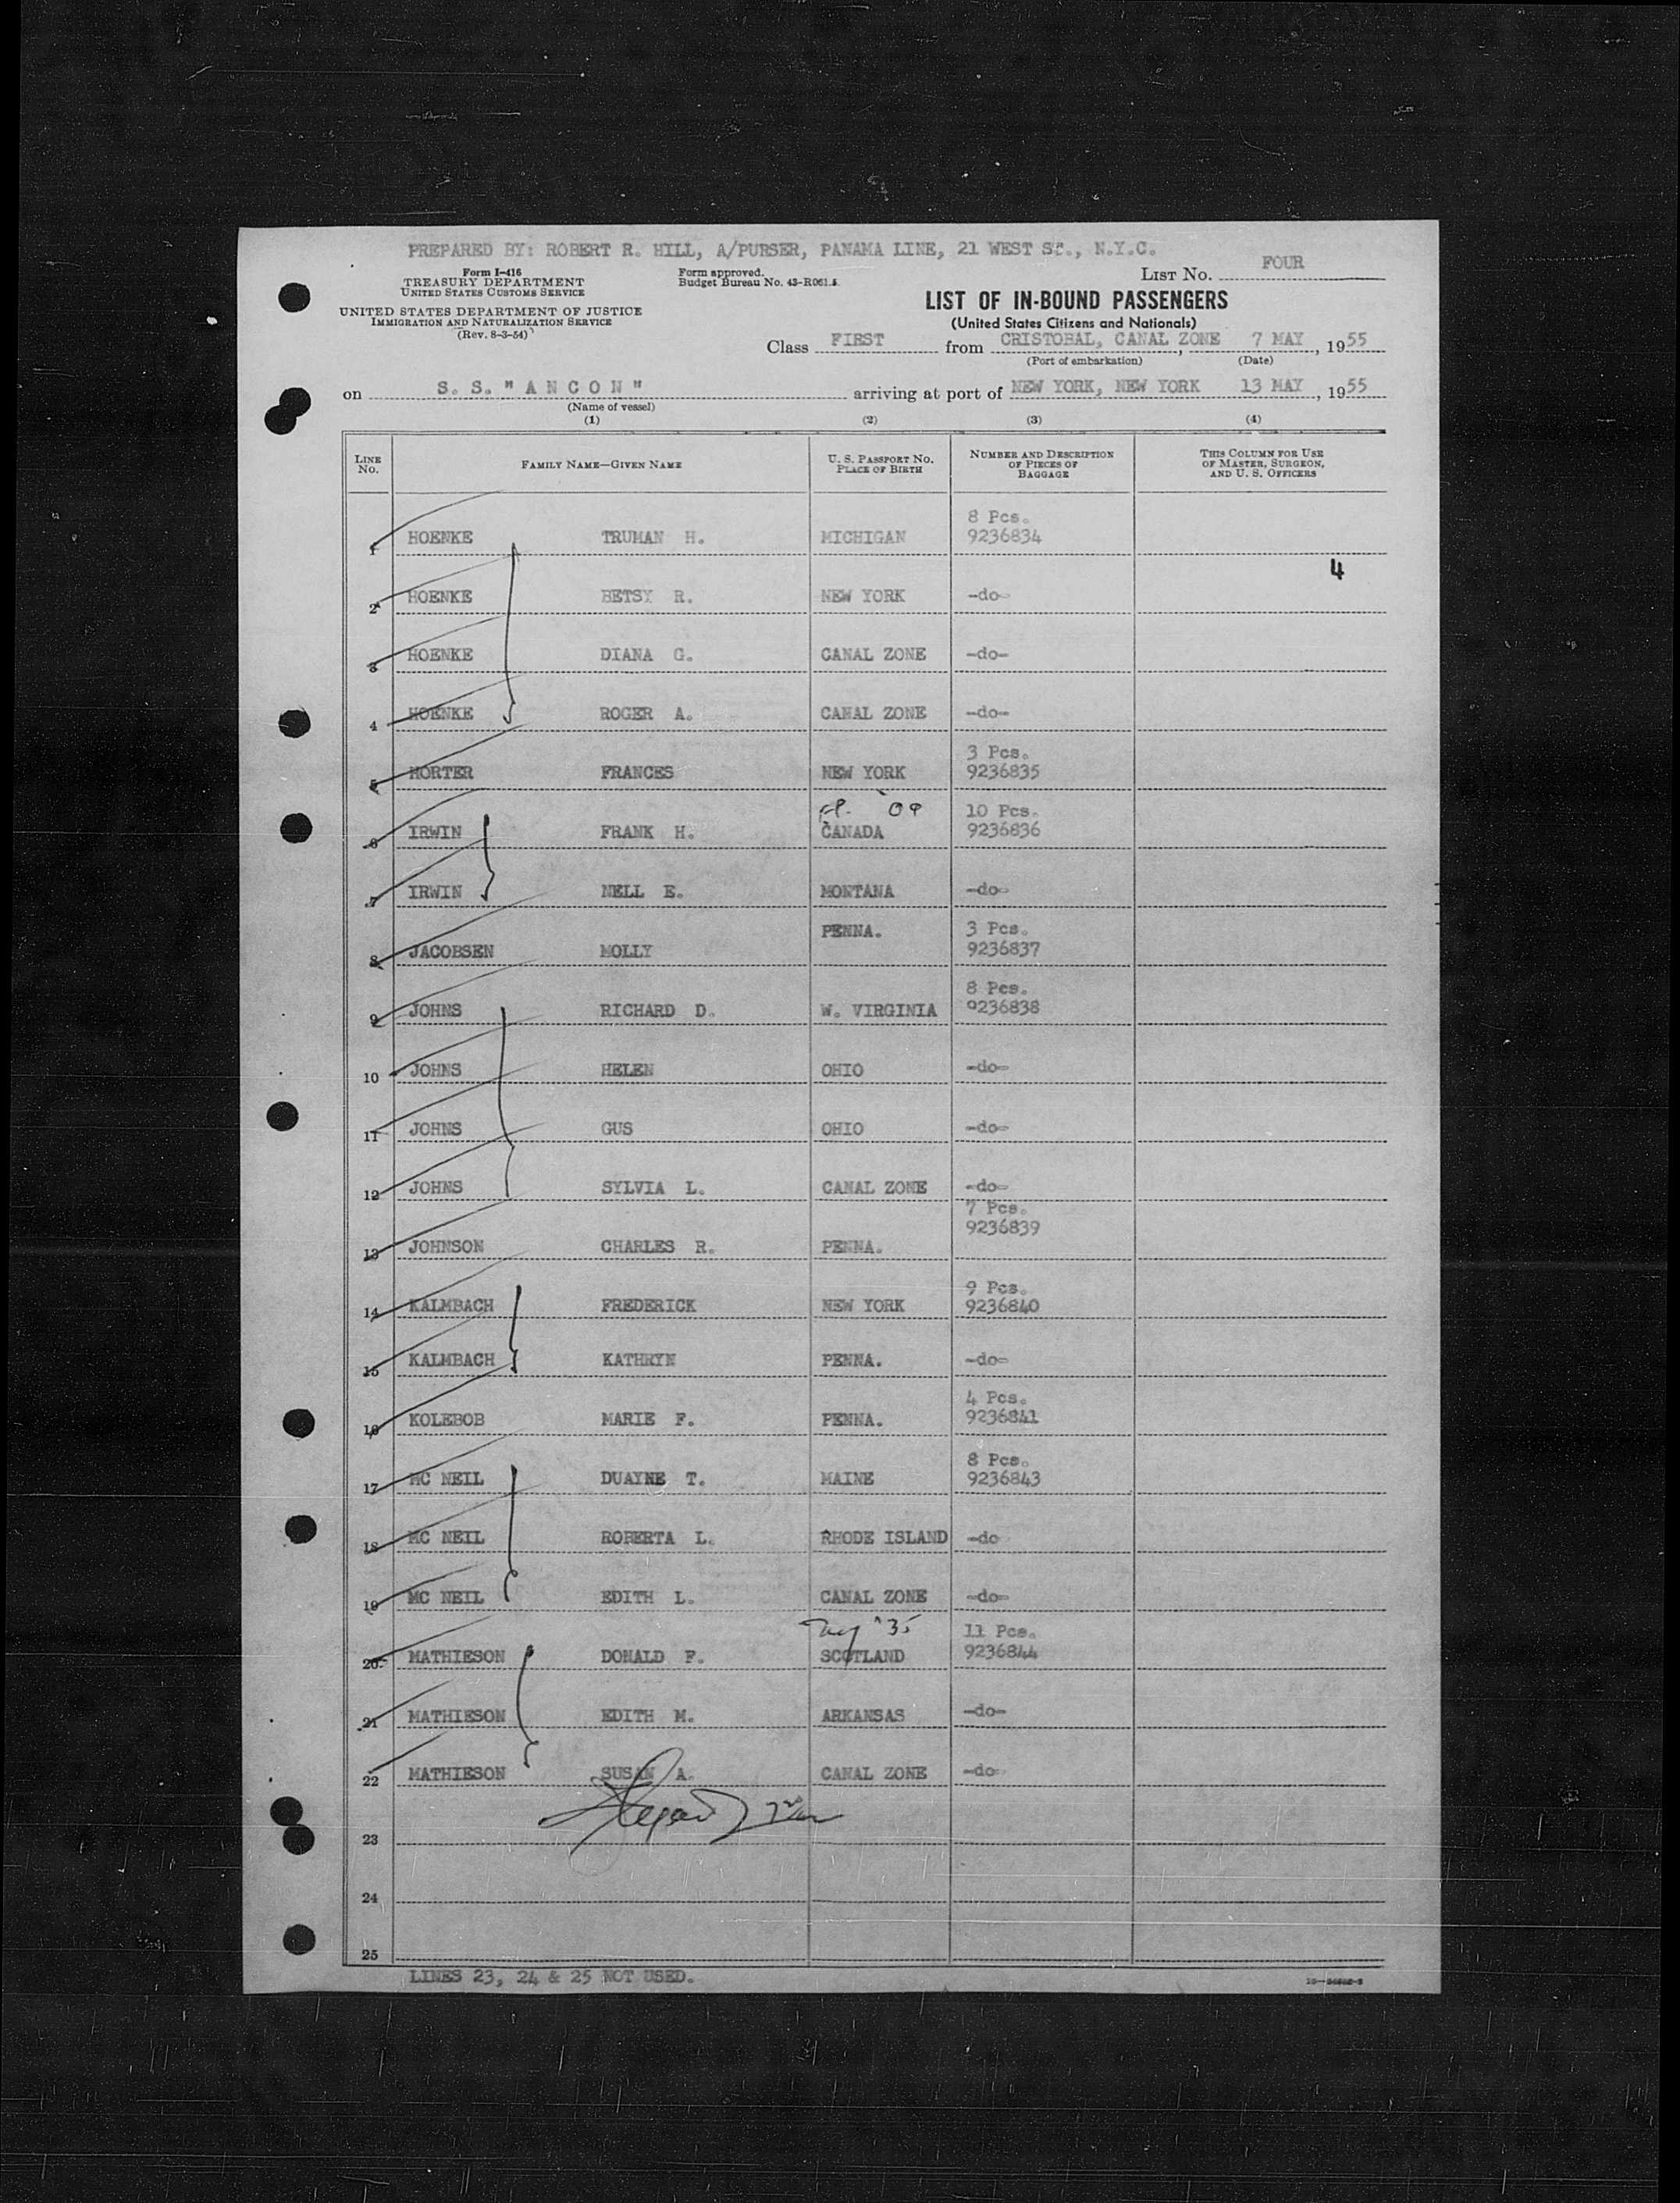 PREPARED BY: ROBERT R. HILL, A/PURSER, PANAMA LINE, 21 WEST ST., N.Y.C.
Form I-416
TREASURY DEPARTMENT
UNITED STATES CUSTOMS SERVICE
UNITED STATES DEPARTMENT OF JUSTICE
IMMIGRATION AND NATURALIZATION SERVICE
(Rev. 8-3-54)
Form approved.
Budget Bureau No. 43-R061.5.
LIST No. FOUR
LIST OF IN-BOUND PASSENGERS
(United States Citizens and Nationals)
Class FIRST from CRISTOBAL, CANAL ZONE, 7 MAY, 1955
(Port of embarkation) (Date)
on S. S. "ANCON" arriving at port of NEW YORK, NEW YORK 13 MAY, 1955
(Name of vessel)
(1) (2) (3) (4)
LINE No. FAMILY NAME—GIVEN NAME U. S. PASSPORT No. PLACE OF BIRTH NUMBER AND DESCRIPTION OF PIECES OF BAGGAGE THIS COLUMN FOR USE OF MASTER, SURGEON, AND U. S. OFFICERS
8 Pcs.
1 HOENKE TRUMAN H. MICHIGAN 9236834
4
2 HOENKE BETSY R. NEW YORK -do-
3 HOENKE DIANA G. CANAL ZONE -do-
4 HOENKE ROGER A. CANAL ZONE -do-
3 Pcs.
5 HORTER FRANCES NEW YORK 9236835
'09 10 Pcs.
6 IRWIN FRANK H. CANADA 9236836
7 IRWIN NELL E. MONTANA -do-
PENNA. 3 Pcs.
8 JACOBSEN MOLLY 9236837
8 Pcs.
9 JOHNS RICHARD D. W. VIRGINIA 9236838
10 JOHNS HELEN OHIO -do-
11 JOHNS GUS OHIO -do-
12 JOHNS SYLVIA L. CANAL ZONE -do-
7 Pcs.
9236839
13 JOHNSON CHARLES R. PENNA.
9 Pcs.
14 KALMBACH FREDERICK NEW YORK 9236840
15 KALMBACH KATHRYN PENNA. -do-
4 Pcs.
16 KOLEBOB MARIE F. PENNA. 9236841
8 Pcs.
17 MC NEIL DUAYNE T. MAINE 9236843
18 MC NEIL ROBERTA L. RHODE ISLAND -do-
19 MC NEIL EDITH L. CANAL ZONE -do-
11 Pcs.
20 MATHIESON DONALD F. SCOTLAND 9236844
21 MATHIESON EDITH M. ARKANSAS -do-
22 MATHIESON SUSAN A. CANAL ZONE -do-
23
24
25
LINES 23, 24 & 25 NOT USED.